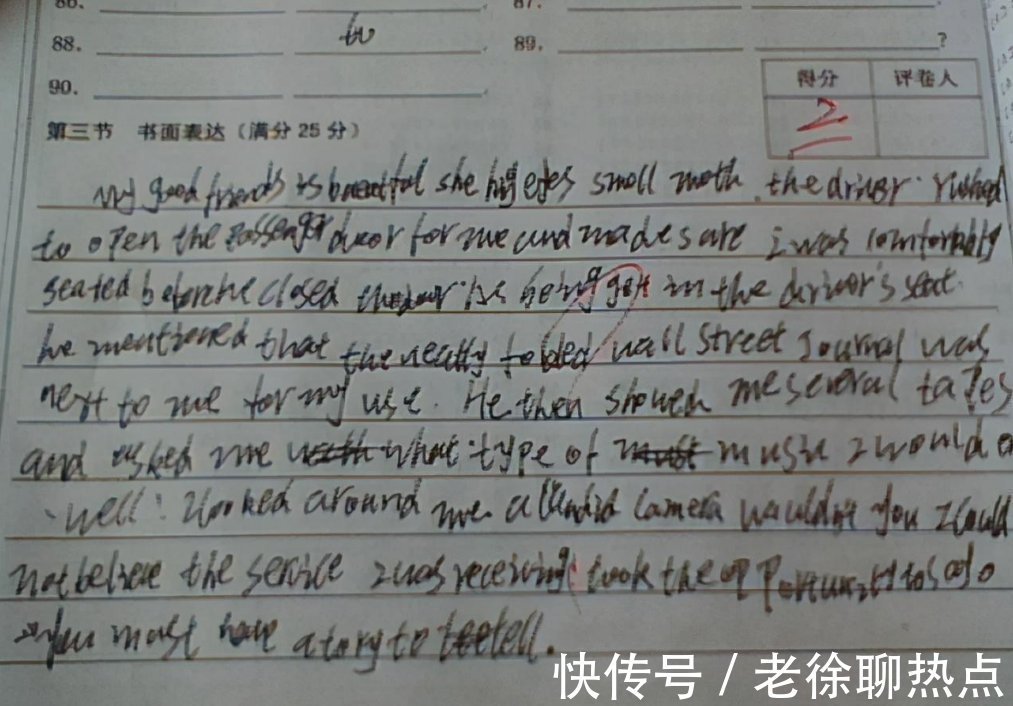 86.
87.
88. to
89. ?
90.
得分 评卷人
2
第三节 书面表达（满分25分）
my good friends is beautful she big eyes smoll moth. the driver rushed
to open the Passenger door for me and made sure i was comfortably
seated before he closed the door. As being got in the driver's seat.
he mentioned that the neatly folded wall Street Journal was
next to me for my use. He then showed me several tapes
and asked me what type of music I would
well! I looked around me. a Candid Camera wouldn't you I could
not believe the service I was receiving took the opportunity to
you must have a tory to tell.
快传号 / 老徐聊热点